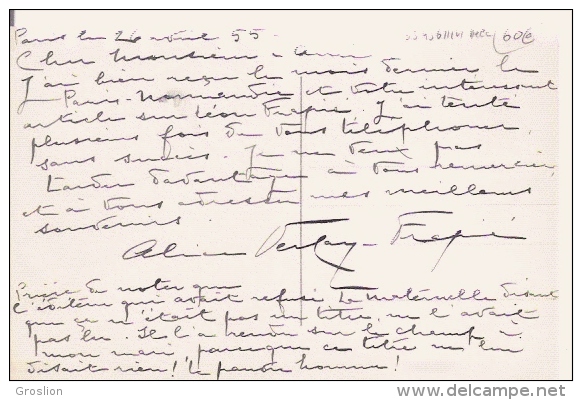 Paris le 26 avril 55
60€
Cher Monsieur - Ami
J'ai bien reçu le mois dernier le
Paris-Normandie et votre intéressant
article sur Léon Frapié. J'ai tenté
plusieurs fois de vous téléphoner,
sans succès. Je ne veux pas
tarder davantage à vous remercier,
et à vous adresser mes meilleurs
souvenirs
Frapié
Prière de noter que
l'éditeur qui avait refusé La Maternelle disant
que ce n'était pas un titre, ne l'avait
pas lu. Il l'a rendu sur le champ à
mon mari, parce que ce titre ne lui
disait rien! Le pauvre homme!
Groslion
© www.delcampe.net